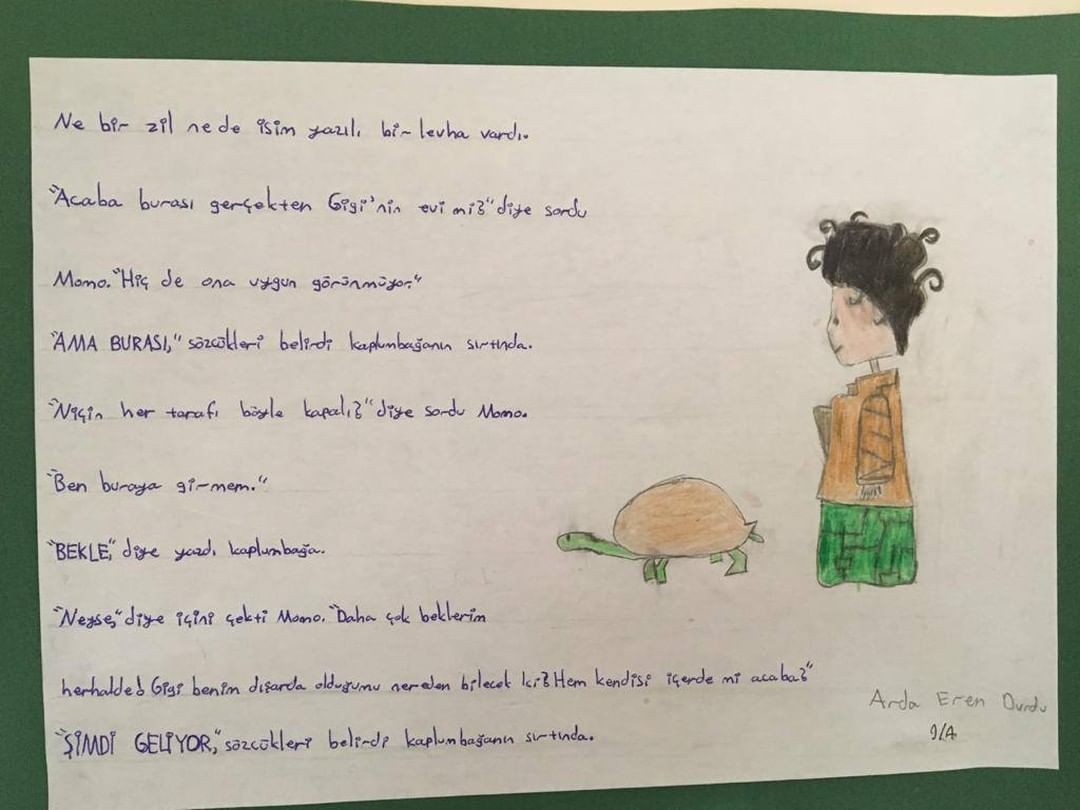 Ne bir zil ne de isim yazılı bir levha vardı.
"Acaba burası gerçekten Gigi'nin evi mi?" diye sordu
Momo. "Hiç de ona uygun görünmüyor."
"AMA BURASI," sözcükleri belirdi kaplumbağanın sırtında.
"Niçin her tarafı böyle kapalı?" diye sordu Momo.
"Ben buraya girmem."
"BEKLE," diye yazdı kaplumbağa.
"Neyse," diye içini çekti Momo. "Daha çok beklerim
herhalde! Gigi benim dışarda olduğumu nereden bilecek ki? Hem kendisi içerde mi acaba?"
"ŞİMDİ GELİYOR," sözcükleri belirdi kaplumbağanın sırtında.
Arda Eren Durdu
9/A